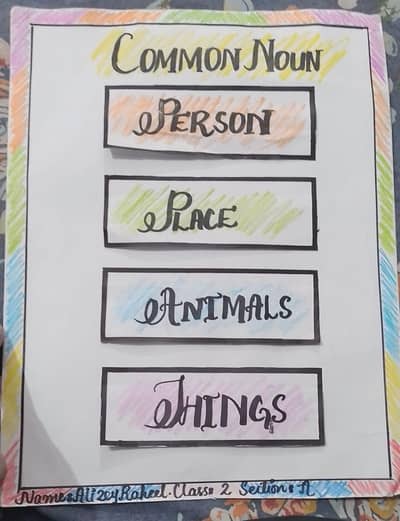 COMMON NOUN
PERSON
PLACE
ANIMALS
THINGS
Name: Alizey Raheel. Class: 2 Section: A